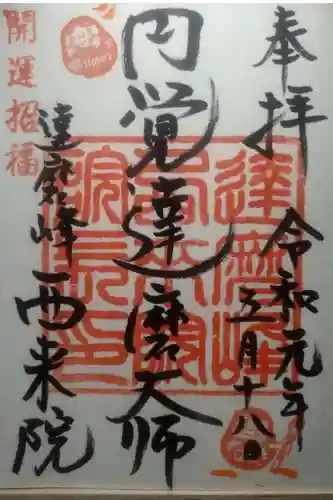 奉拝
令和元年五月十八日
円覚達磨大師
達磨峰 西来院
開運招福
達磨峰